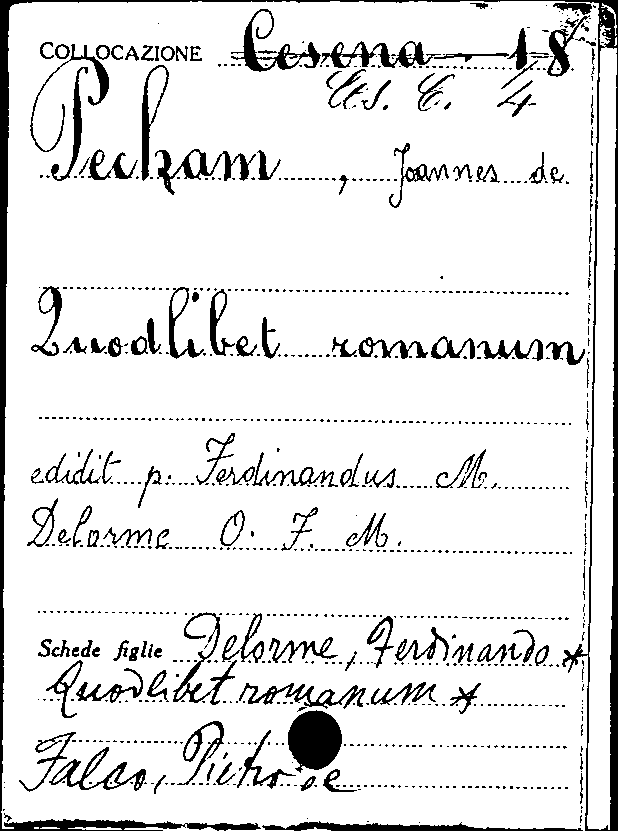 COLLOCAZIONE Cesena - 18
Ets. C. 4
Peckam, Joannes de
Quodlibet romanum
edidit p. Ferdinandus M.
Delorme O. F. M.
Schede figlie Delorme, Ferdinando *
Quodlibet romanum *
Falco, Pietro de